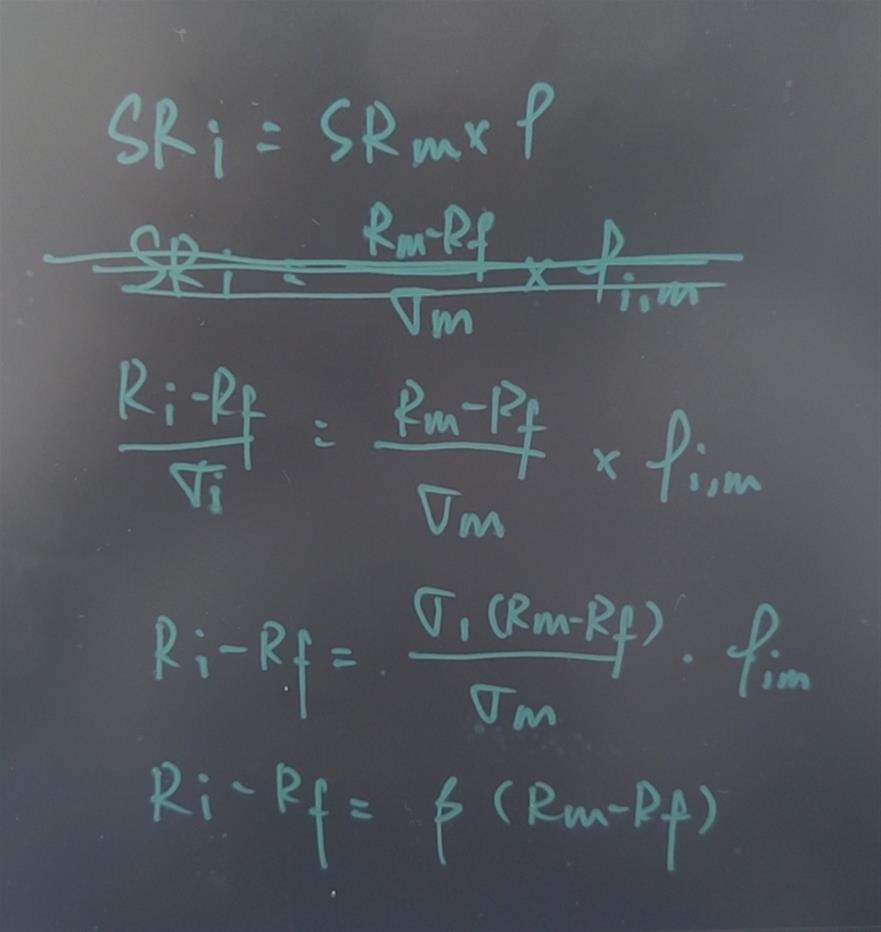 SRi = SRm × ρ
SRi = (Rm-Rf)/σm × ρi,m
(Ri-Rf)/σi = (Rm-Rf)/σm × ρi,m
Ri-Rf = σi(Rm-Rf)/σm · ρim
Ri-Rf = β(Rm-Rf)